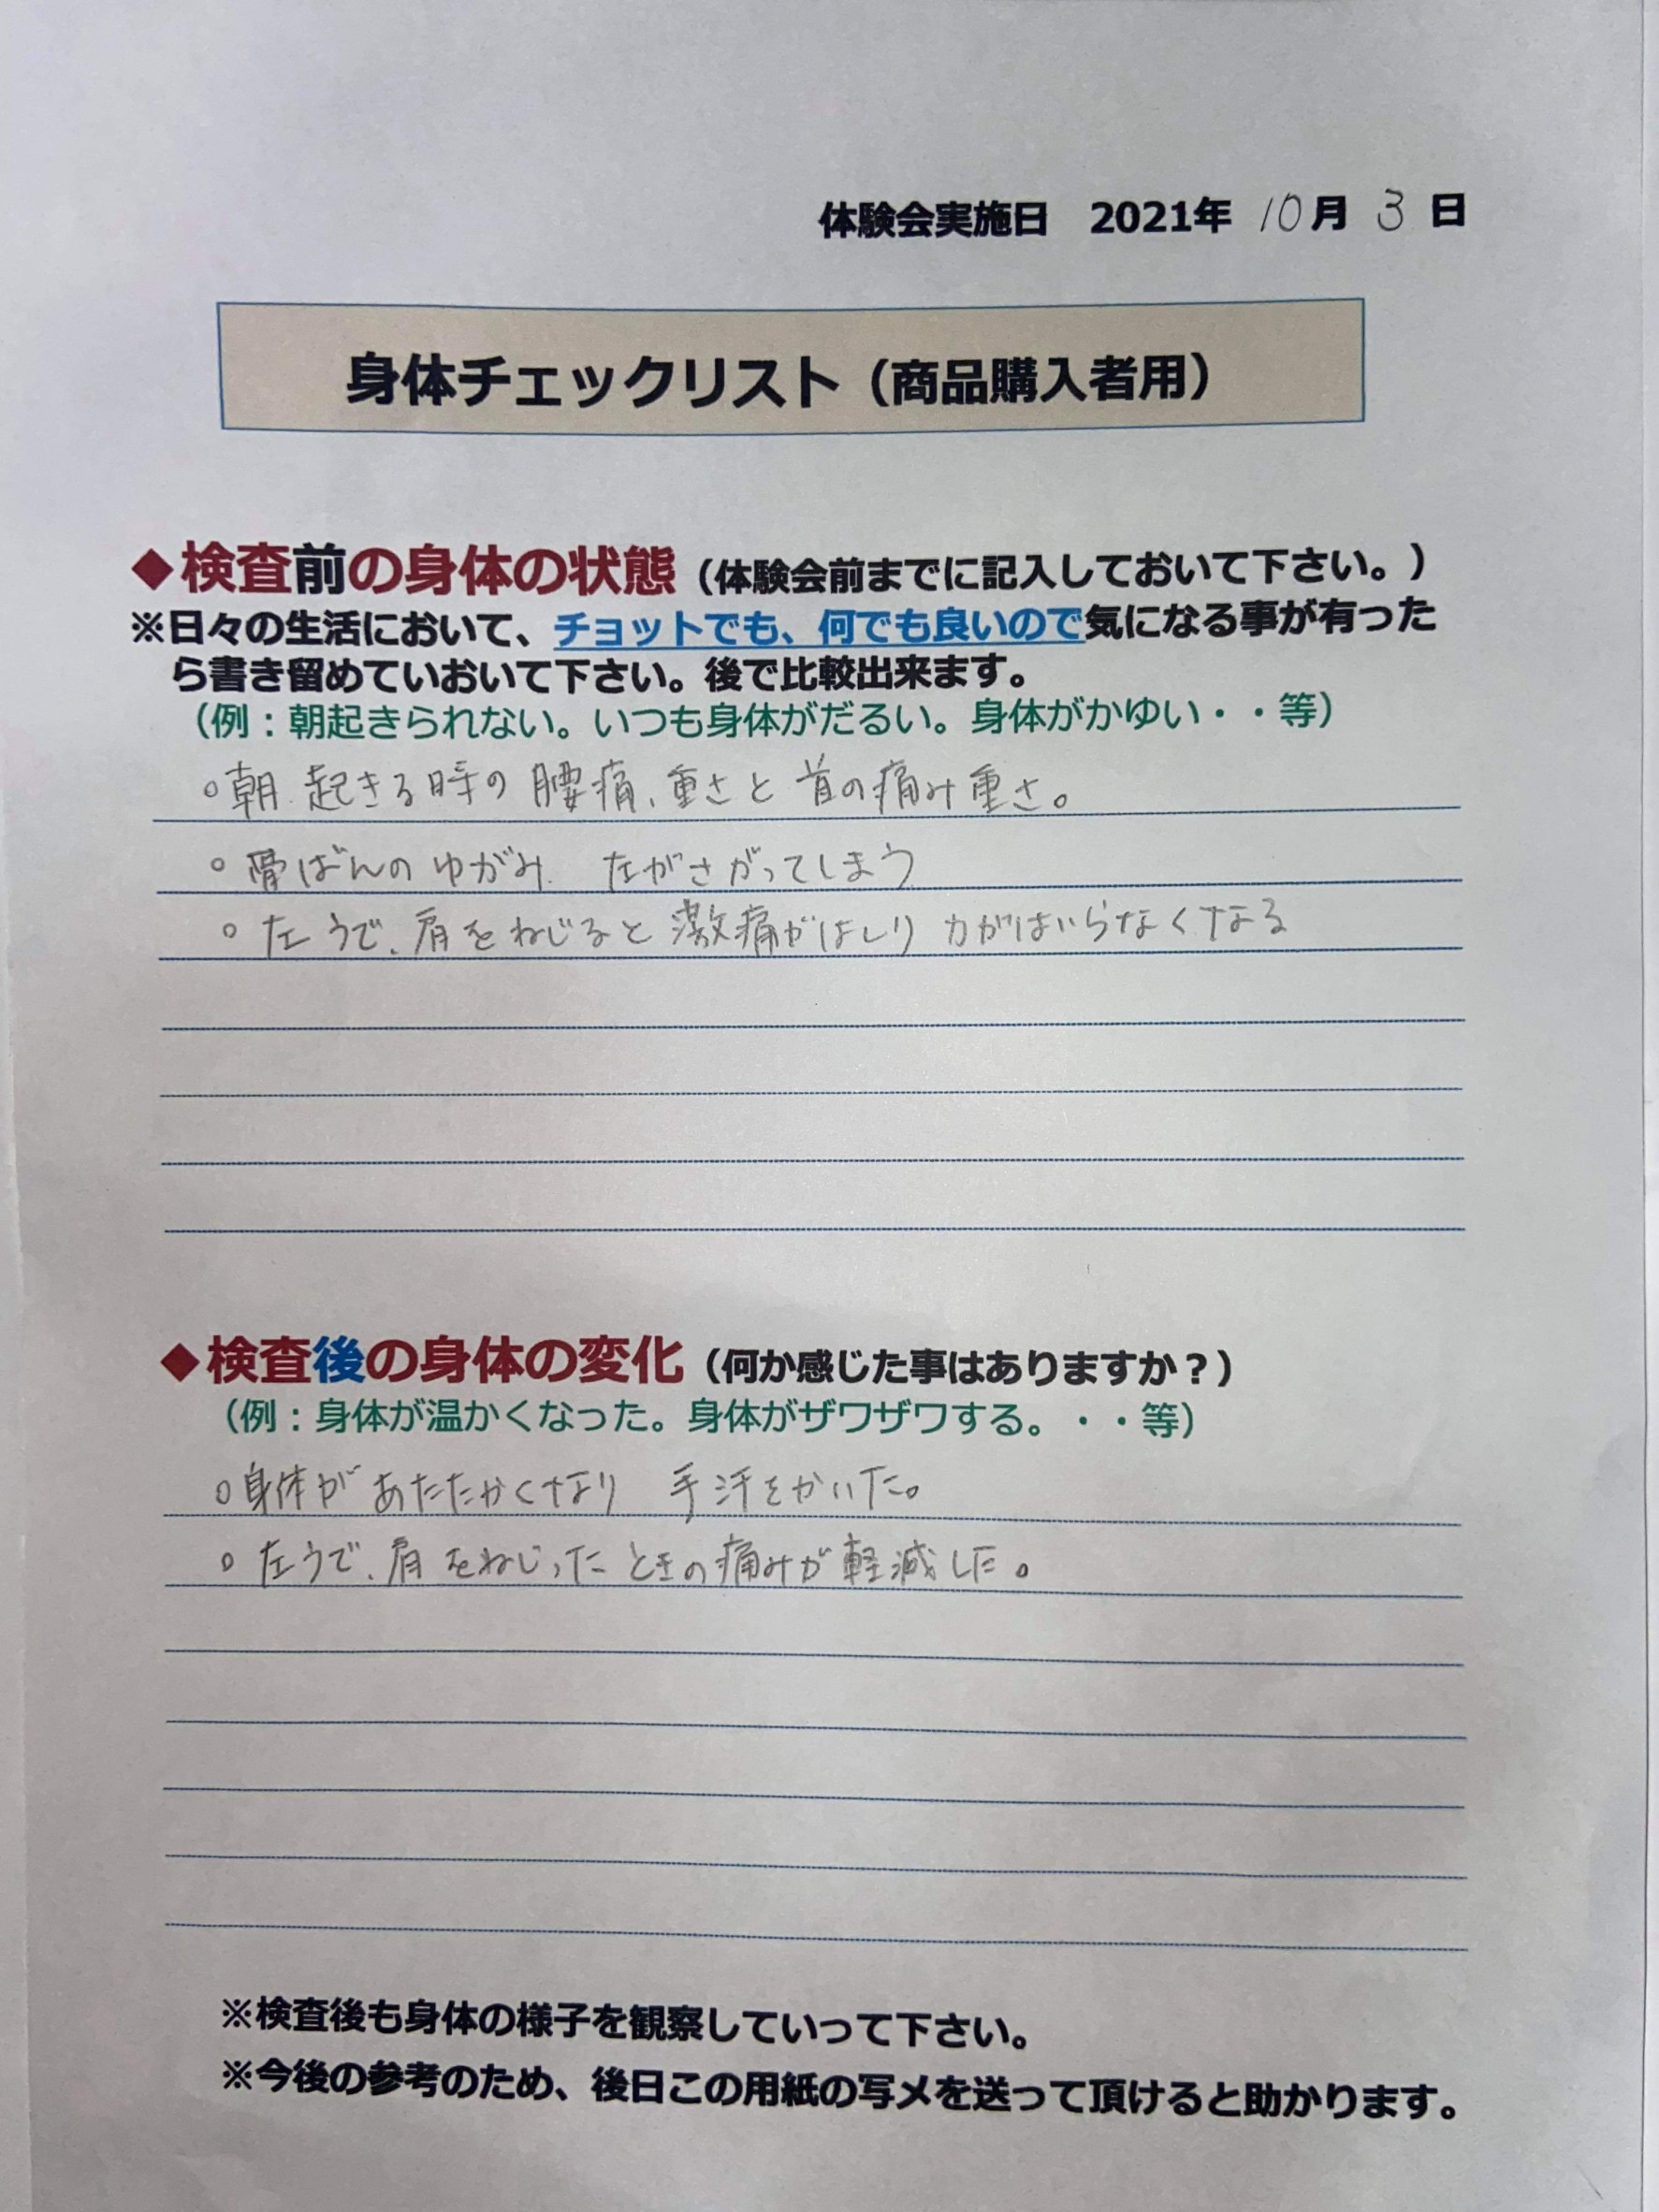 体験会実施日 2021年 10月 3日
身体チェックリスト（商品購入者用）
◆検査前の身体の状態（体験会前までに記入しておいて下さい。）
※日々の生活において、チョットでも、何でも良いので気になる事が有った
ら書き留めていおいて下さい。後で比較出来ます。
（例：朝起きられない。いつも身体がだるい。身体がかゆい・・等）
○朝、起きる時の腰痛、重さと首の痛み重さ。
○骨ばんのゆがみ、左がさがってしまう
○左うで、肩をねじると激痛がはしり力がはいらなくなる
◆検査後の身体の変化（何か感じた事はありますか？）
（例：身体が温かくなった。身体がザワザワする。・・等）
○身体があたたかくなり 手汗をかいた。
○左うで、肩をねじったときの痛みが軽減した。
※検査後も身体の様子を観察していって下さい。
※今後の参考のため、後日この用紙の写メを送って頂けると助かります。